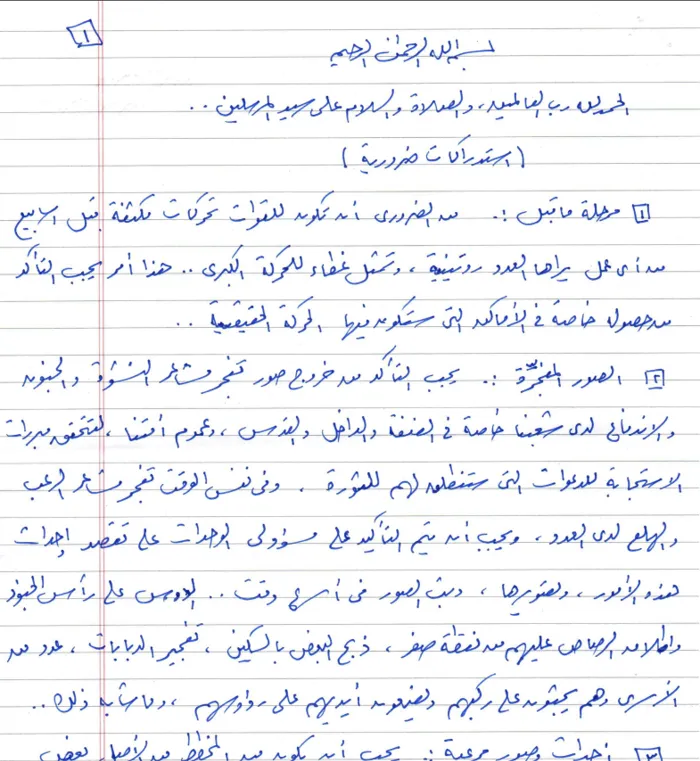 ١
بسم الله الرحمن الرحيم
الحمد لله رب العالمين، والصلاة والسلام على سيد المرسلين ..
(استدراكات ضرورية)
١ مرحلة ما قبل :. من الضروري أن تكون للقوات تحركات مكثفة قبل أسابيع
من أي عمل يراها العدو روتينية، وتمثل غطاء للحركة الكبرى .. هذا أمر يجب التأكد
من حصوله خاصة في الأماكن التي ستكون فيها الحركة الحقيقية ..
٢ الصور المفجِّرة :. يجب التأكد من خروج صور تفجر مشاعر النشوة والجنون
والاندفاع لدى شعبنا خاصة في الضفة والداخل والقدس، وعموم أمتنا، لتتحقق مبررات
الاستجابة للدعوات التي ستنطلق لهم للثورة، وفي نفس الوقت تفجر مشاعر الرعب
والهلع لدى العدو، ويجب أن يتم التأكيد على مسؤولي الوحدات على تقصد إحداث
هذه الأمور، وتصويرها، وبث الصور في أسرع وقت .. الدوس على رأس الجنود
وإطلاق الرصاص عليهم من نقطة صفر، ذبح البعض بالسكين، تفجير الدبابات، عدد من
الأسرى وهم يجثون على ركبهم ويضعون أيديهم على رؤوسهم، وما شابه ذلك ..
٣ أحداث وصور مرعبة :. يجب أن يكون من المخطط من بعض